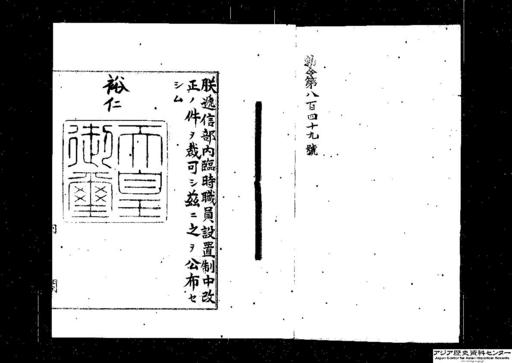 勅令第八百四十九號
朕遞信部內臨時職員設置制中改
正ノ件ヲ裁可シ茲ニ之ヲ公布セ
シム
裕仁
天皇
御璽
アジア歴史資料センター
Japan Center for Asian Historical Records